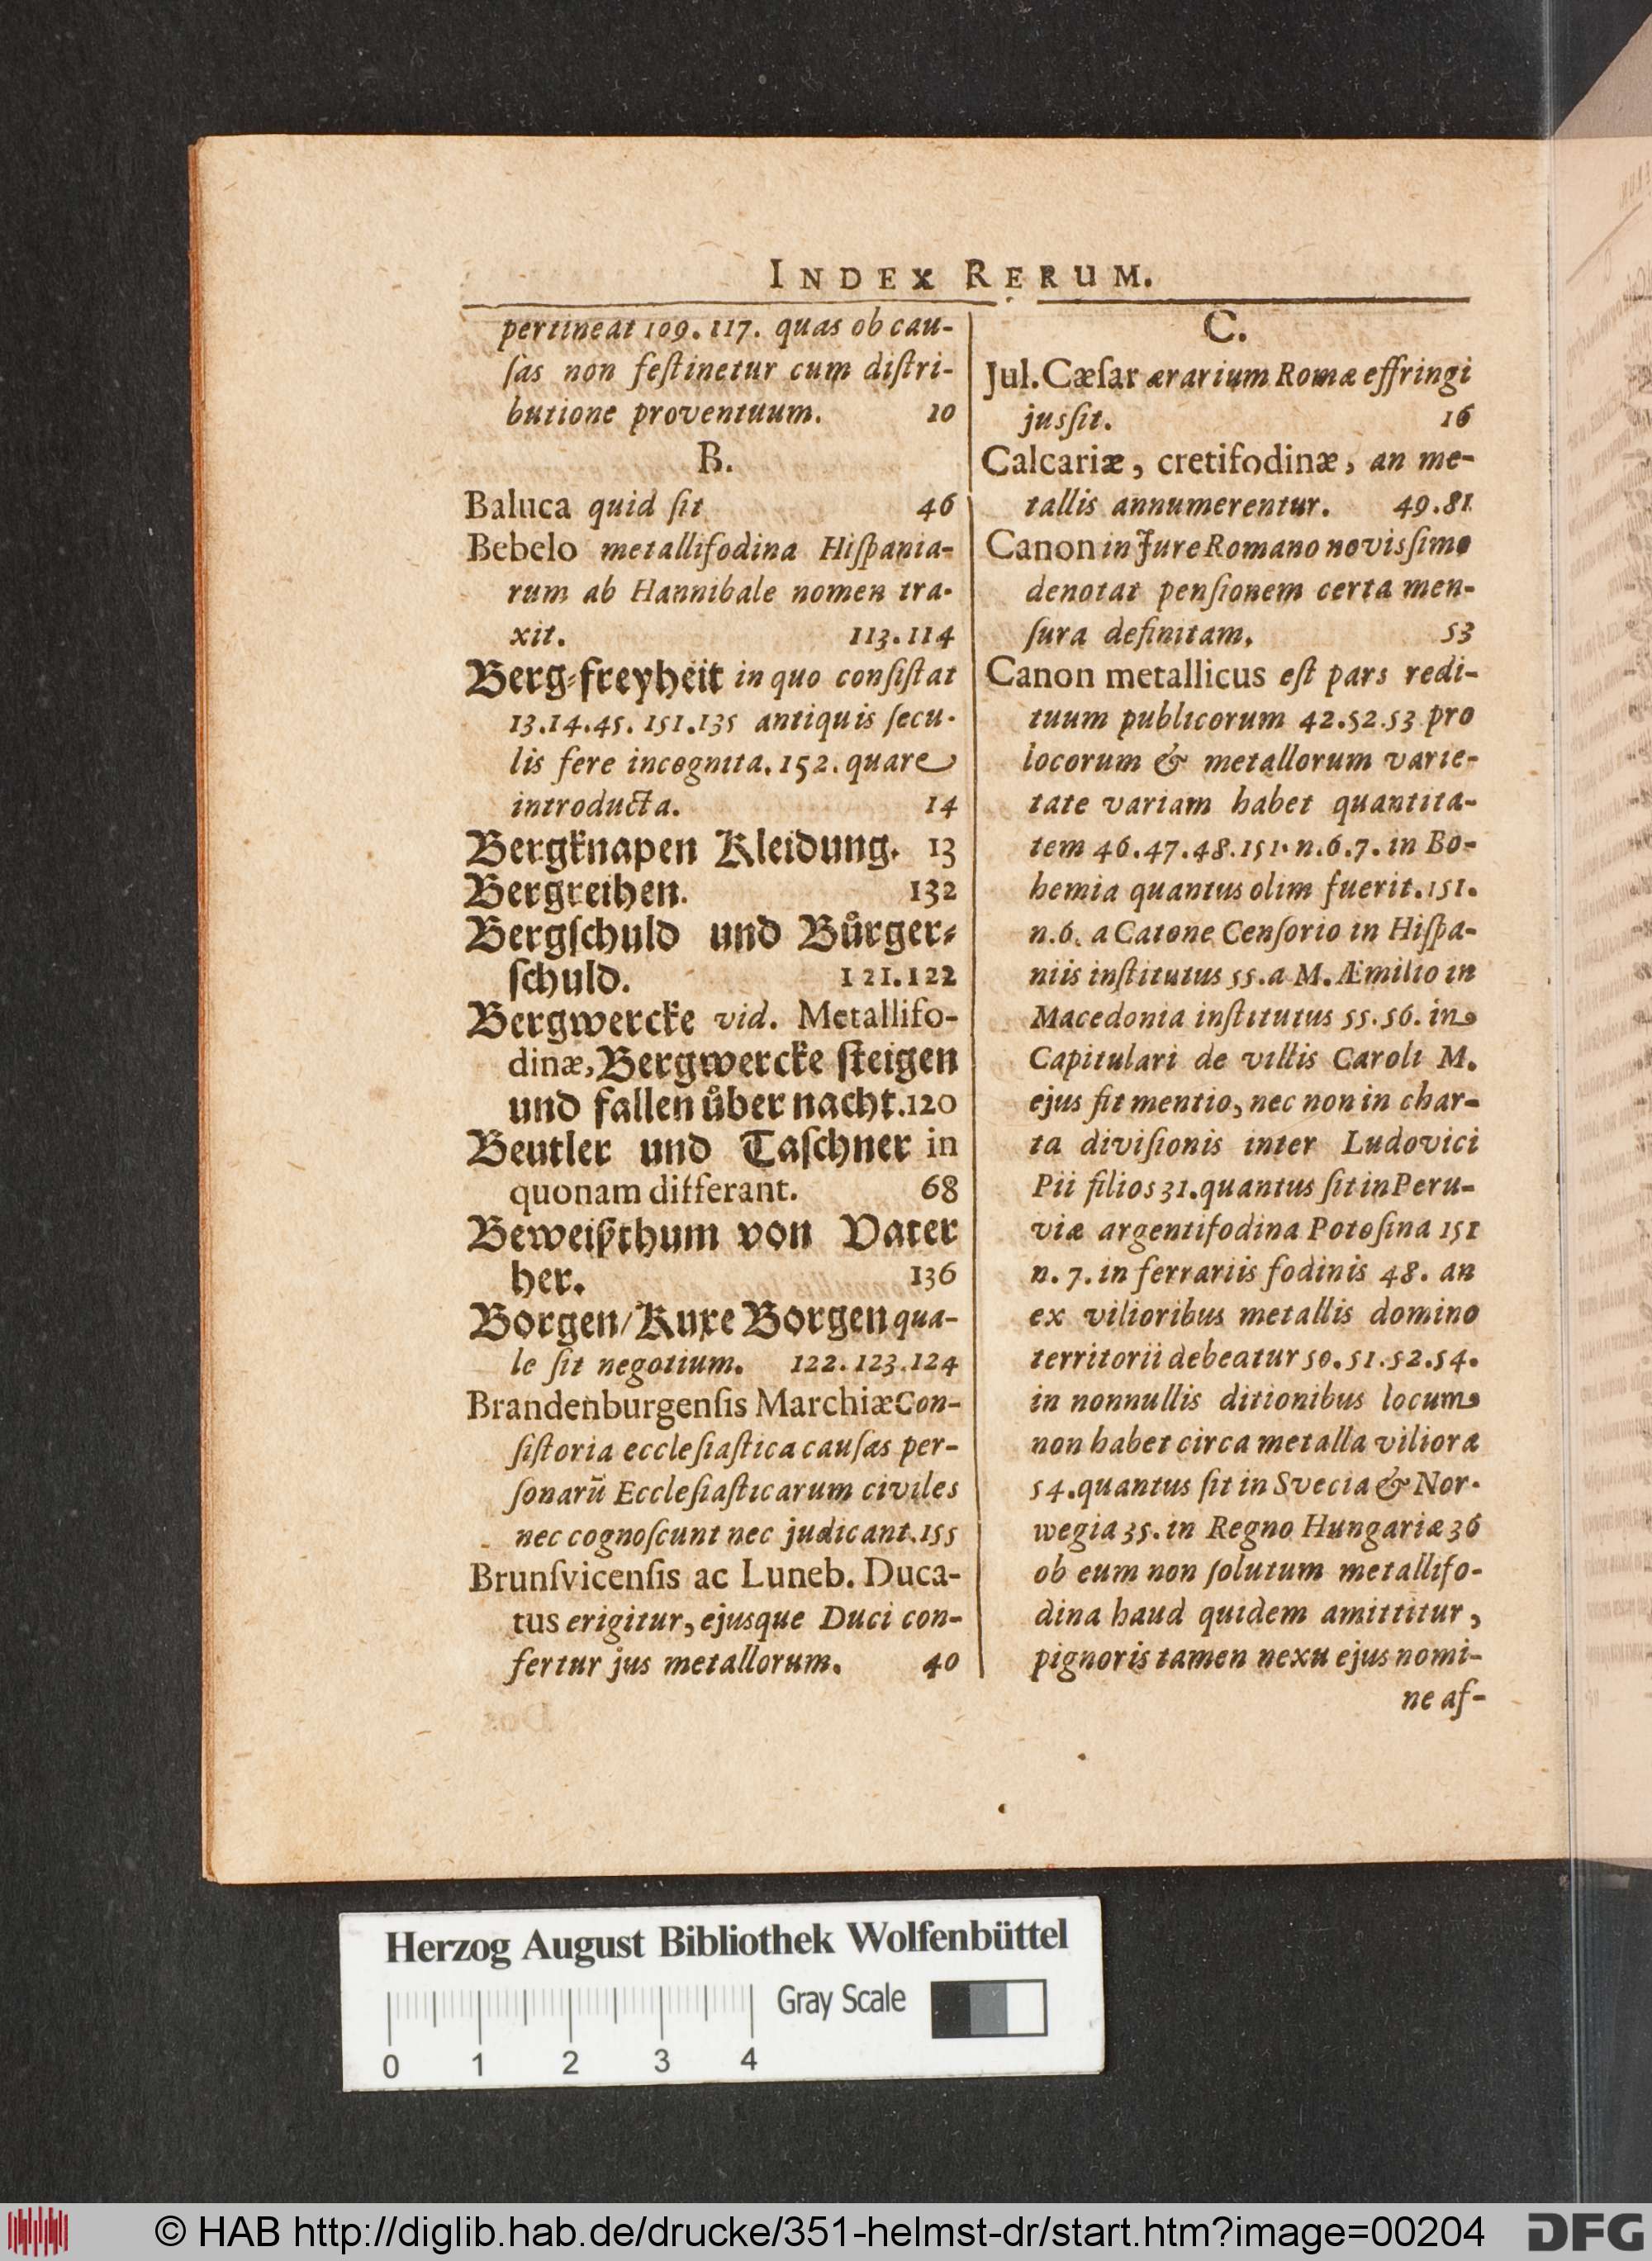 INDEX RERUM.
pertineat 109. 117. quas ob cau-
ſas non feſtinetur cum diſtri-
butione proventuum. 10
B.
Baluca quid ſit 46
Bebelo metallifodina Hiſpania-
rum ab Hannibale nomen tra-
xit. 113. 114
Berg-freyheit in quo conſiſtat
13. 14. 45. 151. 135 antiquis ſecu-
lis fere incognita. 152. quare
introducta. 14
Bergknapen Kleidung. 13
Bergreihen. 132
Bergſchuld und Bůrger-
ſchuld. 121. 122
Bergwercke vid. Metallifo-
dinæ, Bergwercke ſteigen
und fallen ůber nacht. 120
Beutler und Taſchner in
quonam differant. 68
Beweißthum von Vater
her. 136
Borgen/Kuxe Borgen qua-
le ſit negotium. 122. 123. 124
Brandenburgenſis Marchiæ Con-
ſiſtoria eccleſiaſtica cauſas per-
ſonarū Eccleſiaſticarum civiles
nec cognoſcunt nec judicant. 155
Brunſvicenſis ac Luneb. Duca-
tus erigitur, ejusque Duci con-
fertur jus metallorum. 40
C.
Jul. Cæſar ærarium Romæ effringi
jusſit. 16
Calcariæ, cretifodinæ, an me-
tallis annumerentur. 49. 81
Canon in Jure Romano novisſimo
denotat penſionem certa men-
ſura definitam. 53
Canon metallicus eſt pars redi-
tuum publicorum 42. 52. 53 pro
locorum & metallorum varie-
tate variam habet quantita-
tem 46. 47. 48. 151. n. 6. 7. in Bo-
hemia quantus olim fuerit. 151.
n. 6. a Catone Cenſorio in Hiſpa-
niis inſtitutus 55. a M. Æmilio in
Macedonia inſtitutus 55. 56. in
Capitulari de villis Caroli M.
ejus fit mentio, nec non in char-
ta diviſionis inter Ludovici
Pii filios 31. quantus ſit in Peru-
viæ argentifodina Potoſina 151
n. 7. in ferrariis fodinis 48. an
ex vilioribus metallis domino
territorii debeatur 50. 51. 52. 54.
in nonnullis ditionibus locum
non habet circa metalla viliora
54. quantus ſit in Svecia & Nor-
wegia 35. in Regno Hungariæ 36
ob eum non ſolutum metallifo-
dina haud quidem amittitur,
pignoris tamen nexu ejus nomi-
ne af-
Herzog August Bibliothek Wolfenbüttel
Gray Scale
0 1 2 3 4
© HAB http://diglib.hab.de/drucke/351-helmst-dr/start.htm?image=00204
DFG